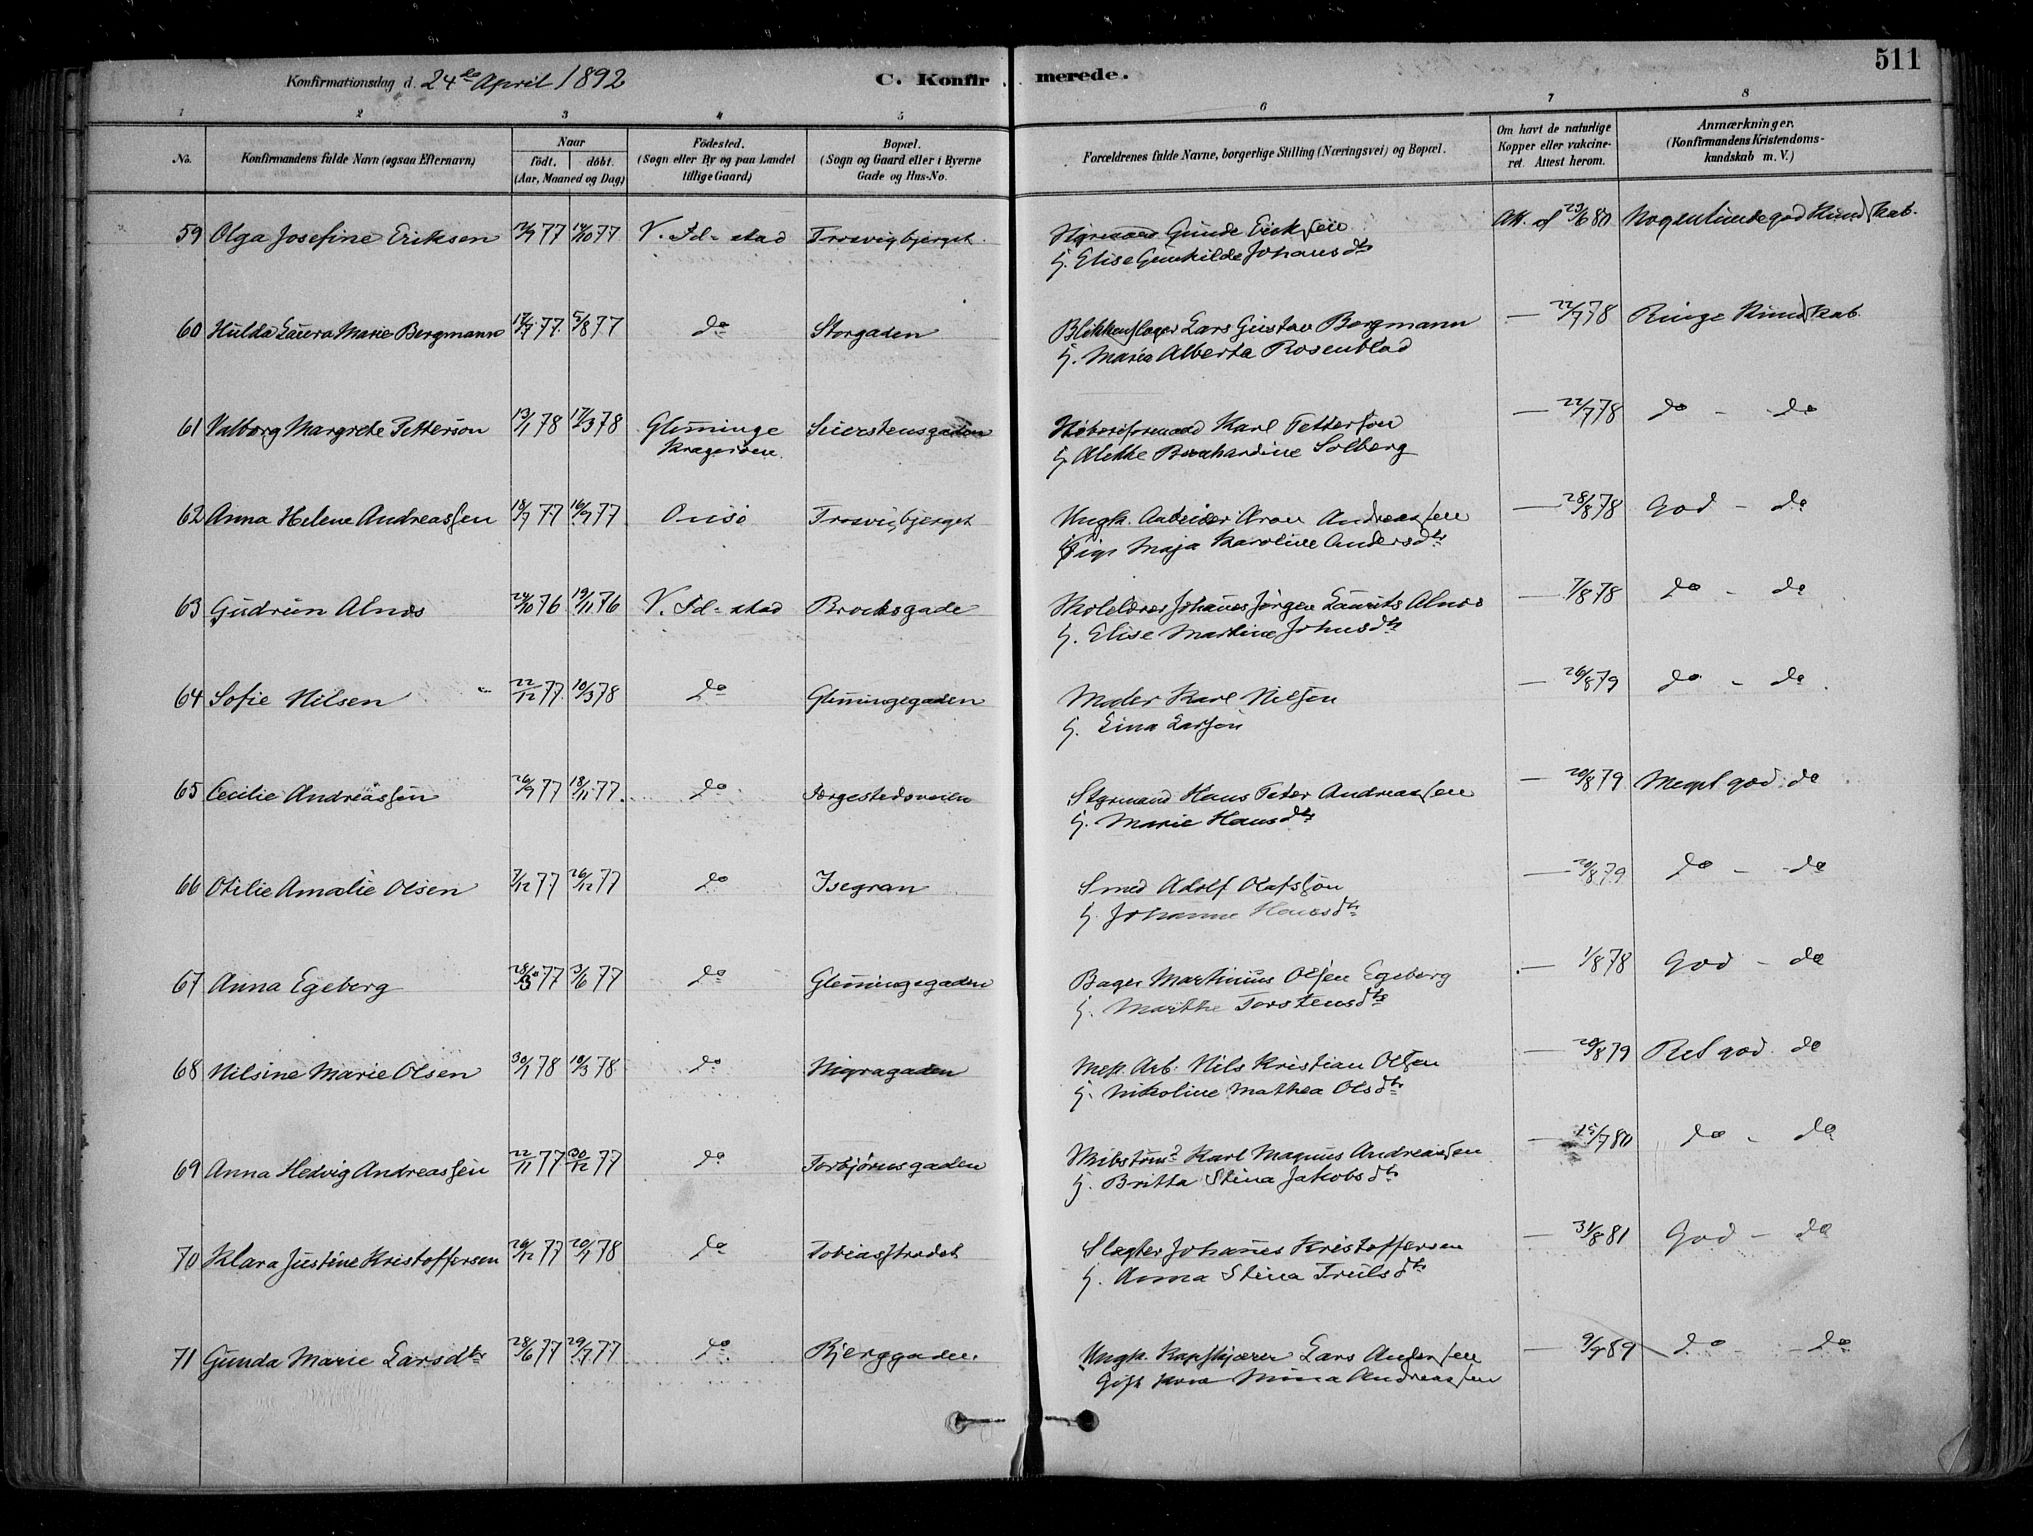 511
Konfirmationsdag d. 24de April 1892 C. Konfirmerede.
1 2 3 4 5 6 7 8
No. Konfirmandens fulde Navn (ogsaa Efternavn) Naar födt. döbt. (Aar, Maaned og Dag) Födested. (Sogn eller By og paa Landet tillige Gaard) Bopæl. (Sogn og Gaard eller i Byerne Gade og Hus-No. Forældrenes fulde Navne, borgerlige Stilling (Næringsvei) og Bopæl. Om havt de naturlige Kopper eller vakcineret. Attest herom. Anmærkninger. (Konfirmandens Kristendomskundskab m. V.)
59 Olga Josefine Eriksen 12/9 77 14/10 77 V. Fd-stad Trosvigbjerget Styrmand Gunde Eriksen Att. af 23/6 80 Nogenlunde god Kundskab.
G. Elise Gunhilde Johansdtr
60 Hulda Laura Marie Bergmann 17/7 77 5/8 77 do Storgaden Blikkenslager Lars Gustav Bergmann — 22/7 78 Ringe Kundskab.
G. Maria Alberta Rosenblad
61 Valborg Margrete Petterson 13/1 78 17/3 78 Glemminge Sciverstensgaden Karl Petterson — 22/7 78 do - do
Kragerøen. G. Alette Bernhardine Solberg
62 Anna Helene Andreassen 18/7 77 16/9 77 Onsø Trosvigbjerget Ungk. Arbeider Aron Andreassen — 28/8 78 God - do
Pige Maja Karoline Andersdtr
63 Gudrun Alnæs 24/10 76 19/11 76 V. Fd-stad Brocksgade Skolelærer Johannes Jørgen Laurits Alnæs — 7/8 78 do - do
G. Elise Martine Johnsdtr
64 Sofie Nilsen 22/12 77 10/3 78 do Glemmingegaden Maler Karl Nilsen — 26/8 79 do - do
G. Lina Larson
65 Cecilie Andreassen 26/9 77 18/11 77. do Torgestedsveien Styrmand Hans Peter Andreassen — 20/8 79 Meget god do
G. Marie Hansdtr
66 Otilie Amalie Olsen 7/12 77 26/12 77 do Isegran Smed Adolf Olafsson — 20/8 79 do - do
G. Johanne Hansdtr
67 Anna Egeberg 28/3 77 3/6 77 do Glemmingegaden Bager Martinius Olsen Egeberg — 1/8 78 God - do
G. Marthe Torstensdtr
68 Nilsine Marie Olsen 30/1 78 10/3 78 do Nygaden Mek. Arb. Nils Kristian Olsen — 20/8 79 Ret god do
G. Nikoline Mathea Olsdtr
69 Anna Hedvig Andreassen 22/11 77 30/12 77 do Torbjørnsgaden Skibstømr Karl Magnus Andreassen — 15/7 80 do - do
G. Britta Stina Jakobsdtr
70 Klara Justine Kristoffersen 26/12 77 20/1 78 do Tobiasstrædet Slagter Johannes Kristoffersen — 31/8 81 God - do
G. Anna Stina Trulsdtr
71 Gunda Marie Larsdtr 28/6 77 29/7 77 do Bjerggaden Ungk. Lars Andersen — 9/9 89 do - do
Gift Kone Mina Andreassen